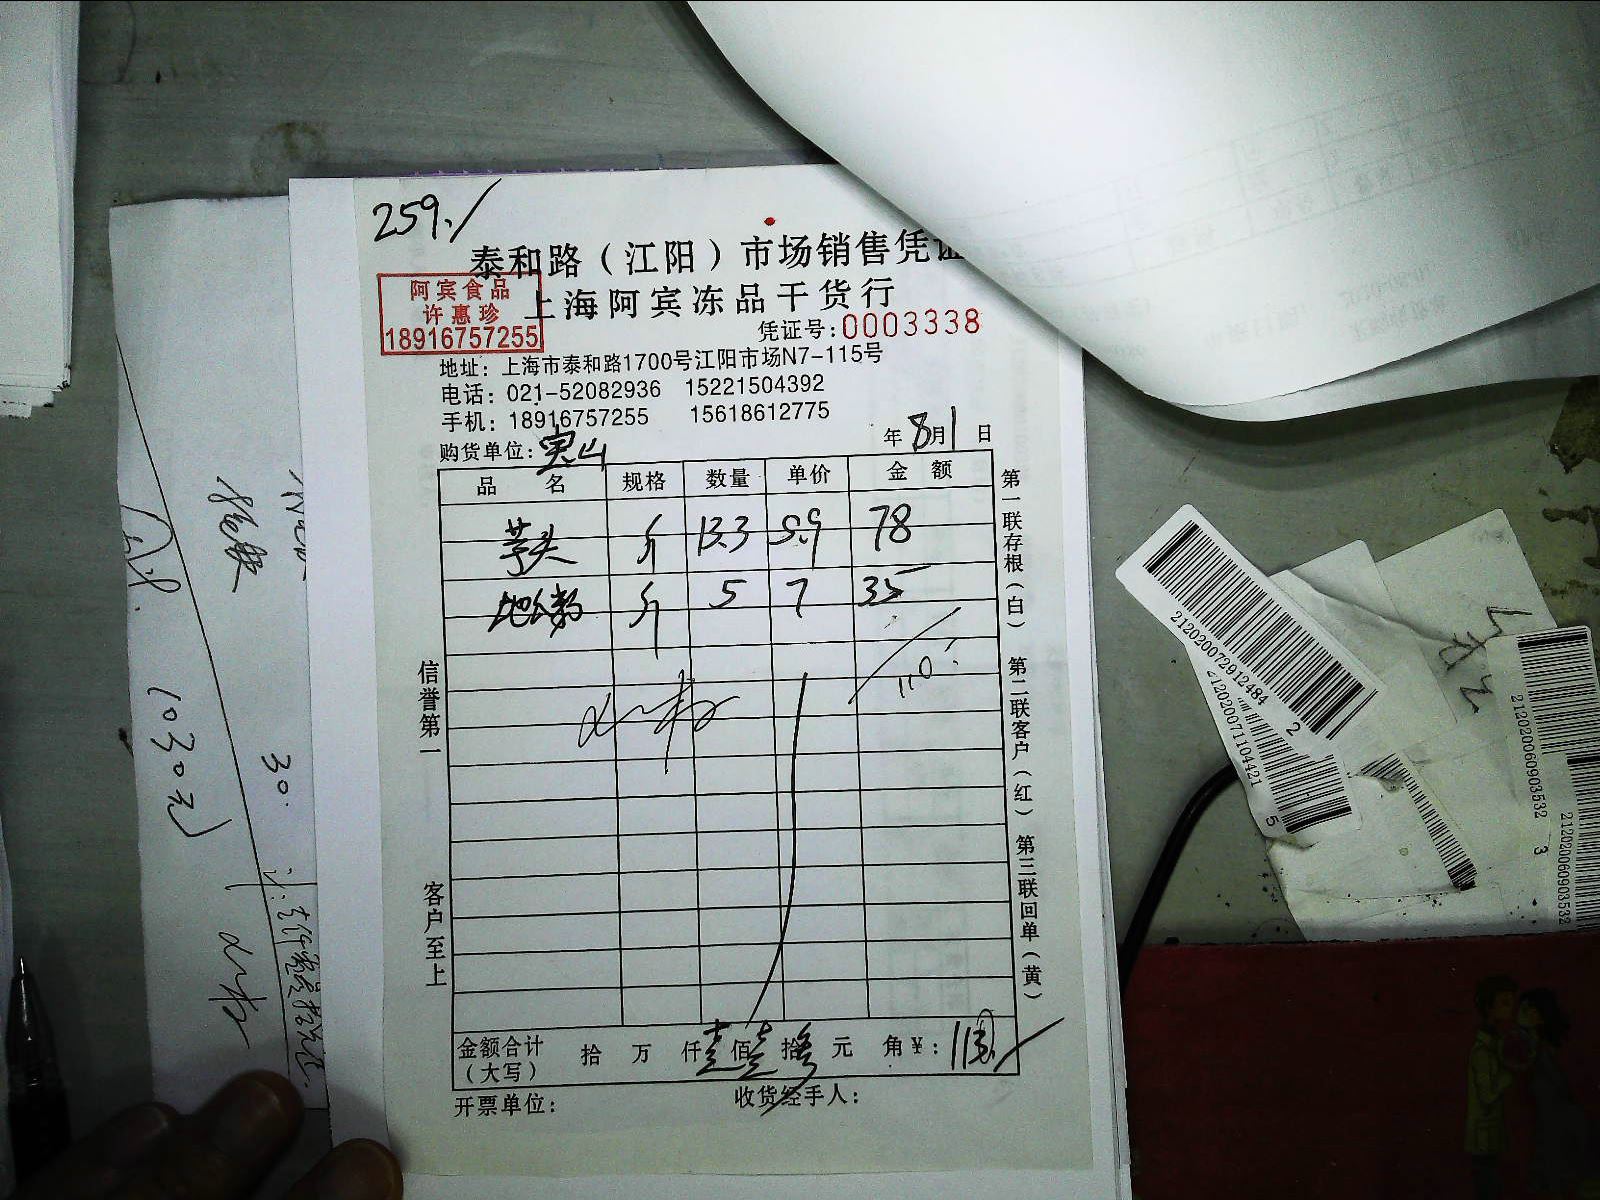 259./
泰和路（江阳）市场销售凭证
上海阿宾冻品干货行
阿宾食品
许惠珍
18916757255
凭证号:0003338
地址：上海市泰和路1700号江阳市场N7-115号
电话：021-52082936 15221504392
手机：18916757255 15618612775
购货单位:宝山 年8月1日
品名 规格 数量 单价 金额
芋头 斤 13.3 5.9 78
斤 5 7 35
110.
金额合计（大写） 拾 万 仟 壹佰 壹拾 叁元 角 ¥:113
开票单位: 收货经手人:
信誉第一
客户至上
第一联存根（白） 第二联客户（红） 第三联回单（黄）
(030元)
30.
2120200729124842
2120200711044215
2120200609035323
212020060903532